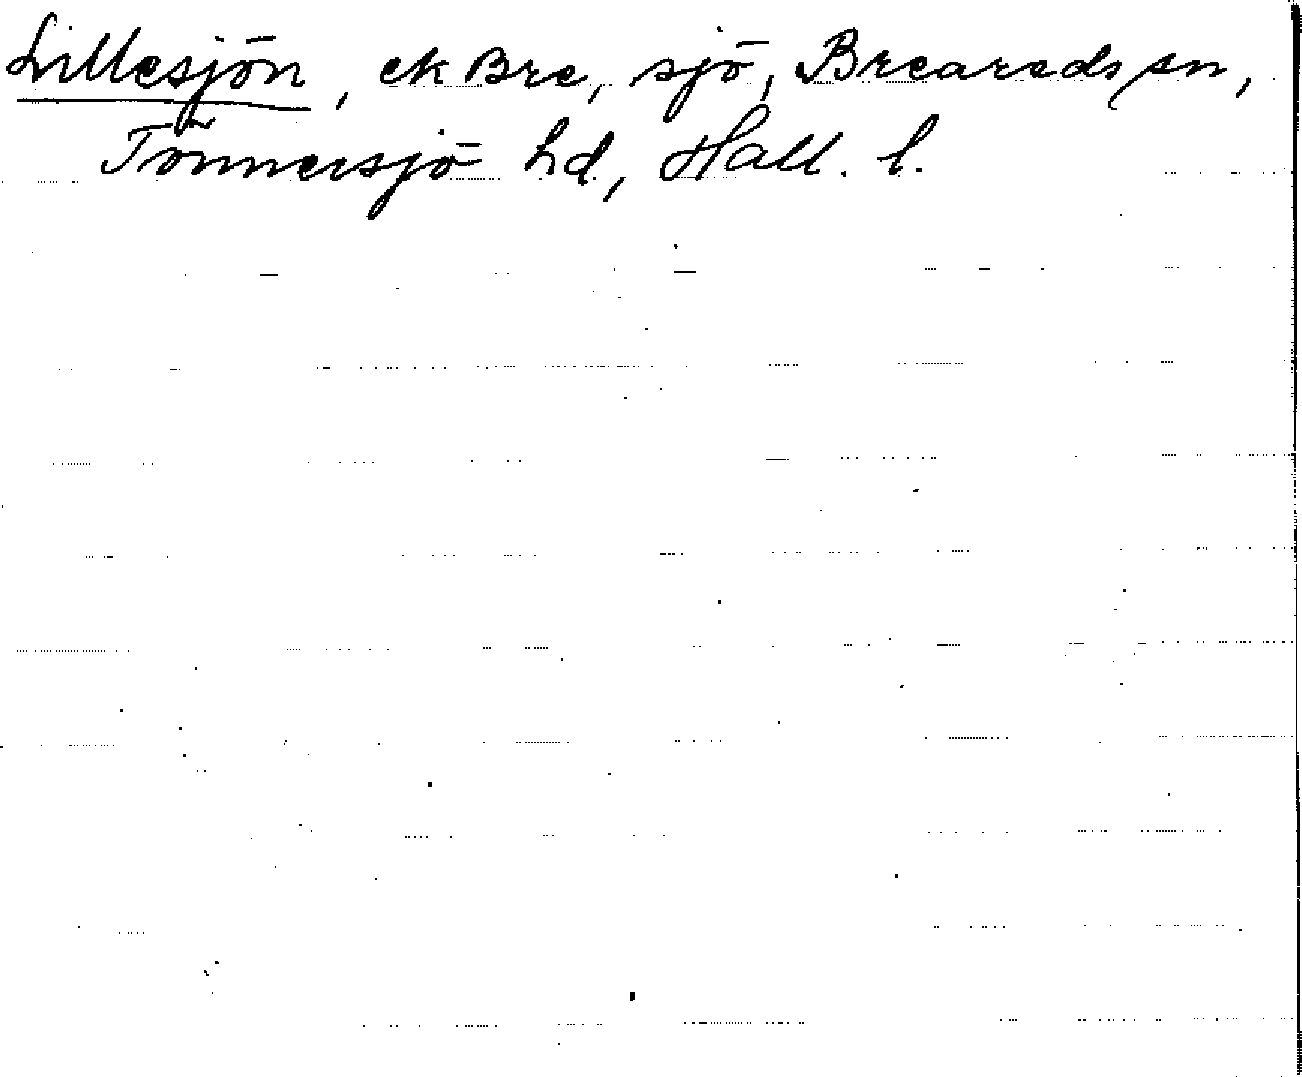 Lillesjön, ek Bre, sjö, Breareds sn,
Tönnersjö hd, Hall. l.